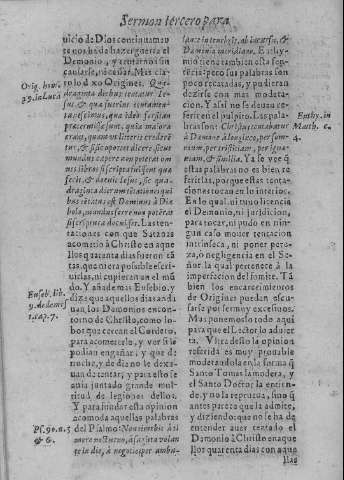 Sermon tercero para
uicio de Dios continuamen
te nos ha de hazer guerra el
Demonio, y tentarnos sin
cansarse, ni cesar. Mas cla
ro lo dixo Origines. Qua
draginta diebus tentatur Ie-
sus, & quæ fuerint tentamen-
ta nescimus, quæ ideo forsitan
prætermissa sunt, quia maiora
erant, quàm vt literis crederē
tur, & si oportet dicere sicut
mundus capere non poterat om
nes libros si scripta fuissent quæ
fecit, & docuit Iesus, sic qua-
draginta dierum tentationes qui
bus tentatus est Dominus à Dia
bolo, mundus ferre non poterat
si scriptura docuisset. Las ten-
taciones con que Satanas
acometio à Christo en aque
llos quarenta dias fueron tā
tas, que ni era posible escri-
uirlas, ni cupieran en el mū
do. Y añade mas Eusebio, y
dize que aquellos dias andu
uan los Demonios encon-
torno de Christo, como lo-
bos que cercan el Cordero,
para acometerlo, y ver si lo
podian engañar; y que de
noche, y de dia no le dexa-
uan de tentar, y para esto se
auia juntado grande mul-
titud de legiones dellos.
Y para fundar esta opinion
acomoda aquellas palabras
del Psalmo: Non timebis à ti
more nocturno, à sagita volan
te in die, à negotio per ambu-
lante in tenebris, ab incursu, &
Dæmonio meridiano. Euthy-
mio tiene tambien esta opi-
nion; pero sus palabras son
poco recatadas, y pudieran
dezirse con mas modera-
cion. Y asi no se deuen re-
ferir en el pulpito. Las pala-
bras son: Christus tentabatur
à Dæmone à longè, per som-
num, per tristitiam, per igna-
uiam, & similia. Ya se ve q̃
estas palabras no es bien re-
ferirlas, porque estas tenta-
ciones tocauan en lo interior.
En lo qual ni tuuo licencia
el Demonio, ni juridicion,
para tocar, ni pudo en nin-
gun caso auer mocion
intrinseca, ni poner pere-
za, o negligencia en el Se-
ñor la qual pertenece à la
imperfeccion del fomite. Tā
bien los encarecimientos
de Origines puedan escu-
sarse por ser muy excessiuos.
Mas ponemoslo todo aqui
para que el Lector lo aduier
ta. Vltra desto la opinion
referida es muy prouable
moderandola en la forma q̃
Santo Tomas la modera, y
el Santo Doctor la entien-
de, y no la reprueua, sino q̃
antes parece que la admite,
y diziendo: que no se ha de
entender auer tentado el
Demonio à Christo en aque
llos quarenta dias con aque
llas
Orig. hom.
29. in Lucā
Euseb. lib.
9. de demōs
t. cap. 7.
Ps. 90. n. 5
& 6.
Euthy. in
Matth. c.
4.